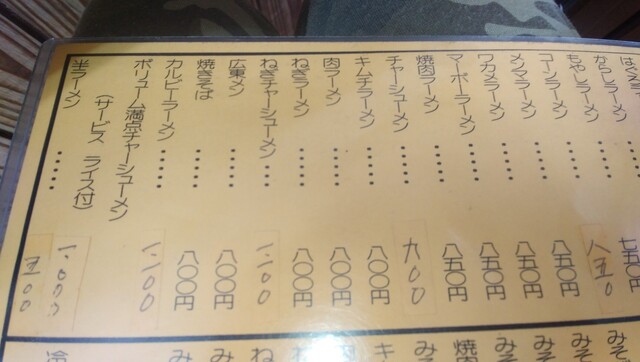 からしラーメン
もやしラーメン・・・・・七五〇円
コーンラーメン・・・・・八五〇
メンマラーメン・・・・・八五〇円
ワカメラーメン・・・・・八五〇円
マーボーラーメン・・・・・八五〇円
焼肉ラーメン・・・・・八五〇円
チャーシューメン・・・・・九〇〇
キムチラーメン・・・・・八〇〇円
肉ラーメン・・・・・八〇〇円
ねぎラーメン・・・・・八〇〇円
ねぎチャーシューメン・・・・・一、一〇〇
広東メン・・・・・八〇〇円
焼きそば・・・・・八〇〇円
カルビーラーメン・・・・・一、一〇〇
ボリューム満点チャーシューメン
(サービス ライス付) 一、〇〇〇
半ラーメン・・・・・五〇〇
みそ
みそ
みそ
みそ
焼肉
みそ
キ
ね
ね
み
み
冷